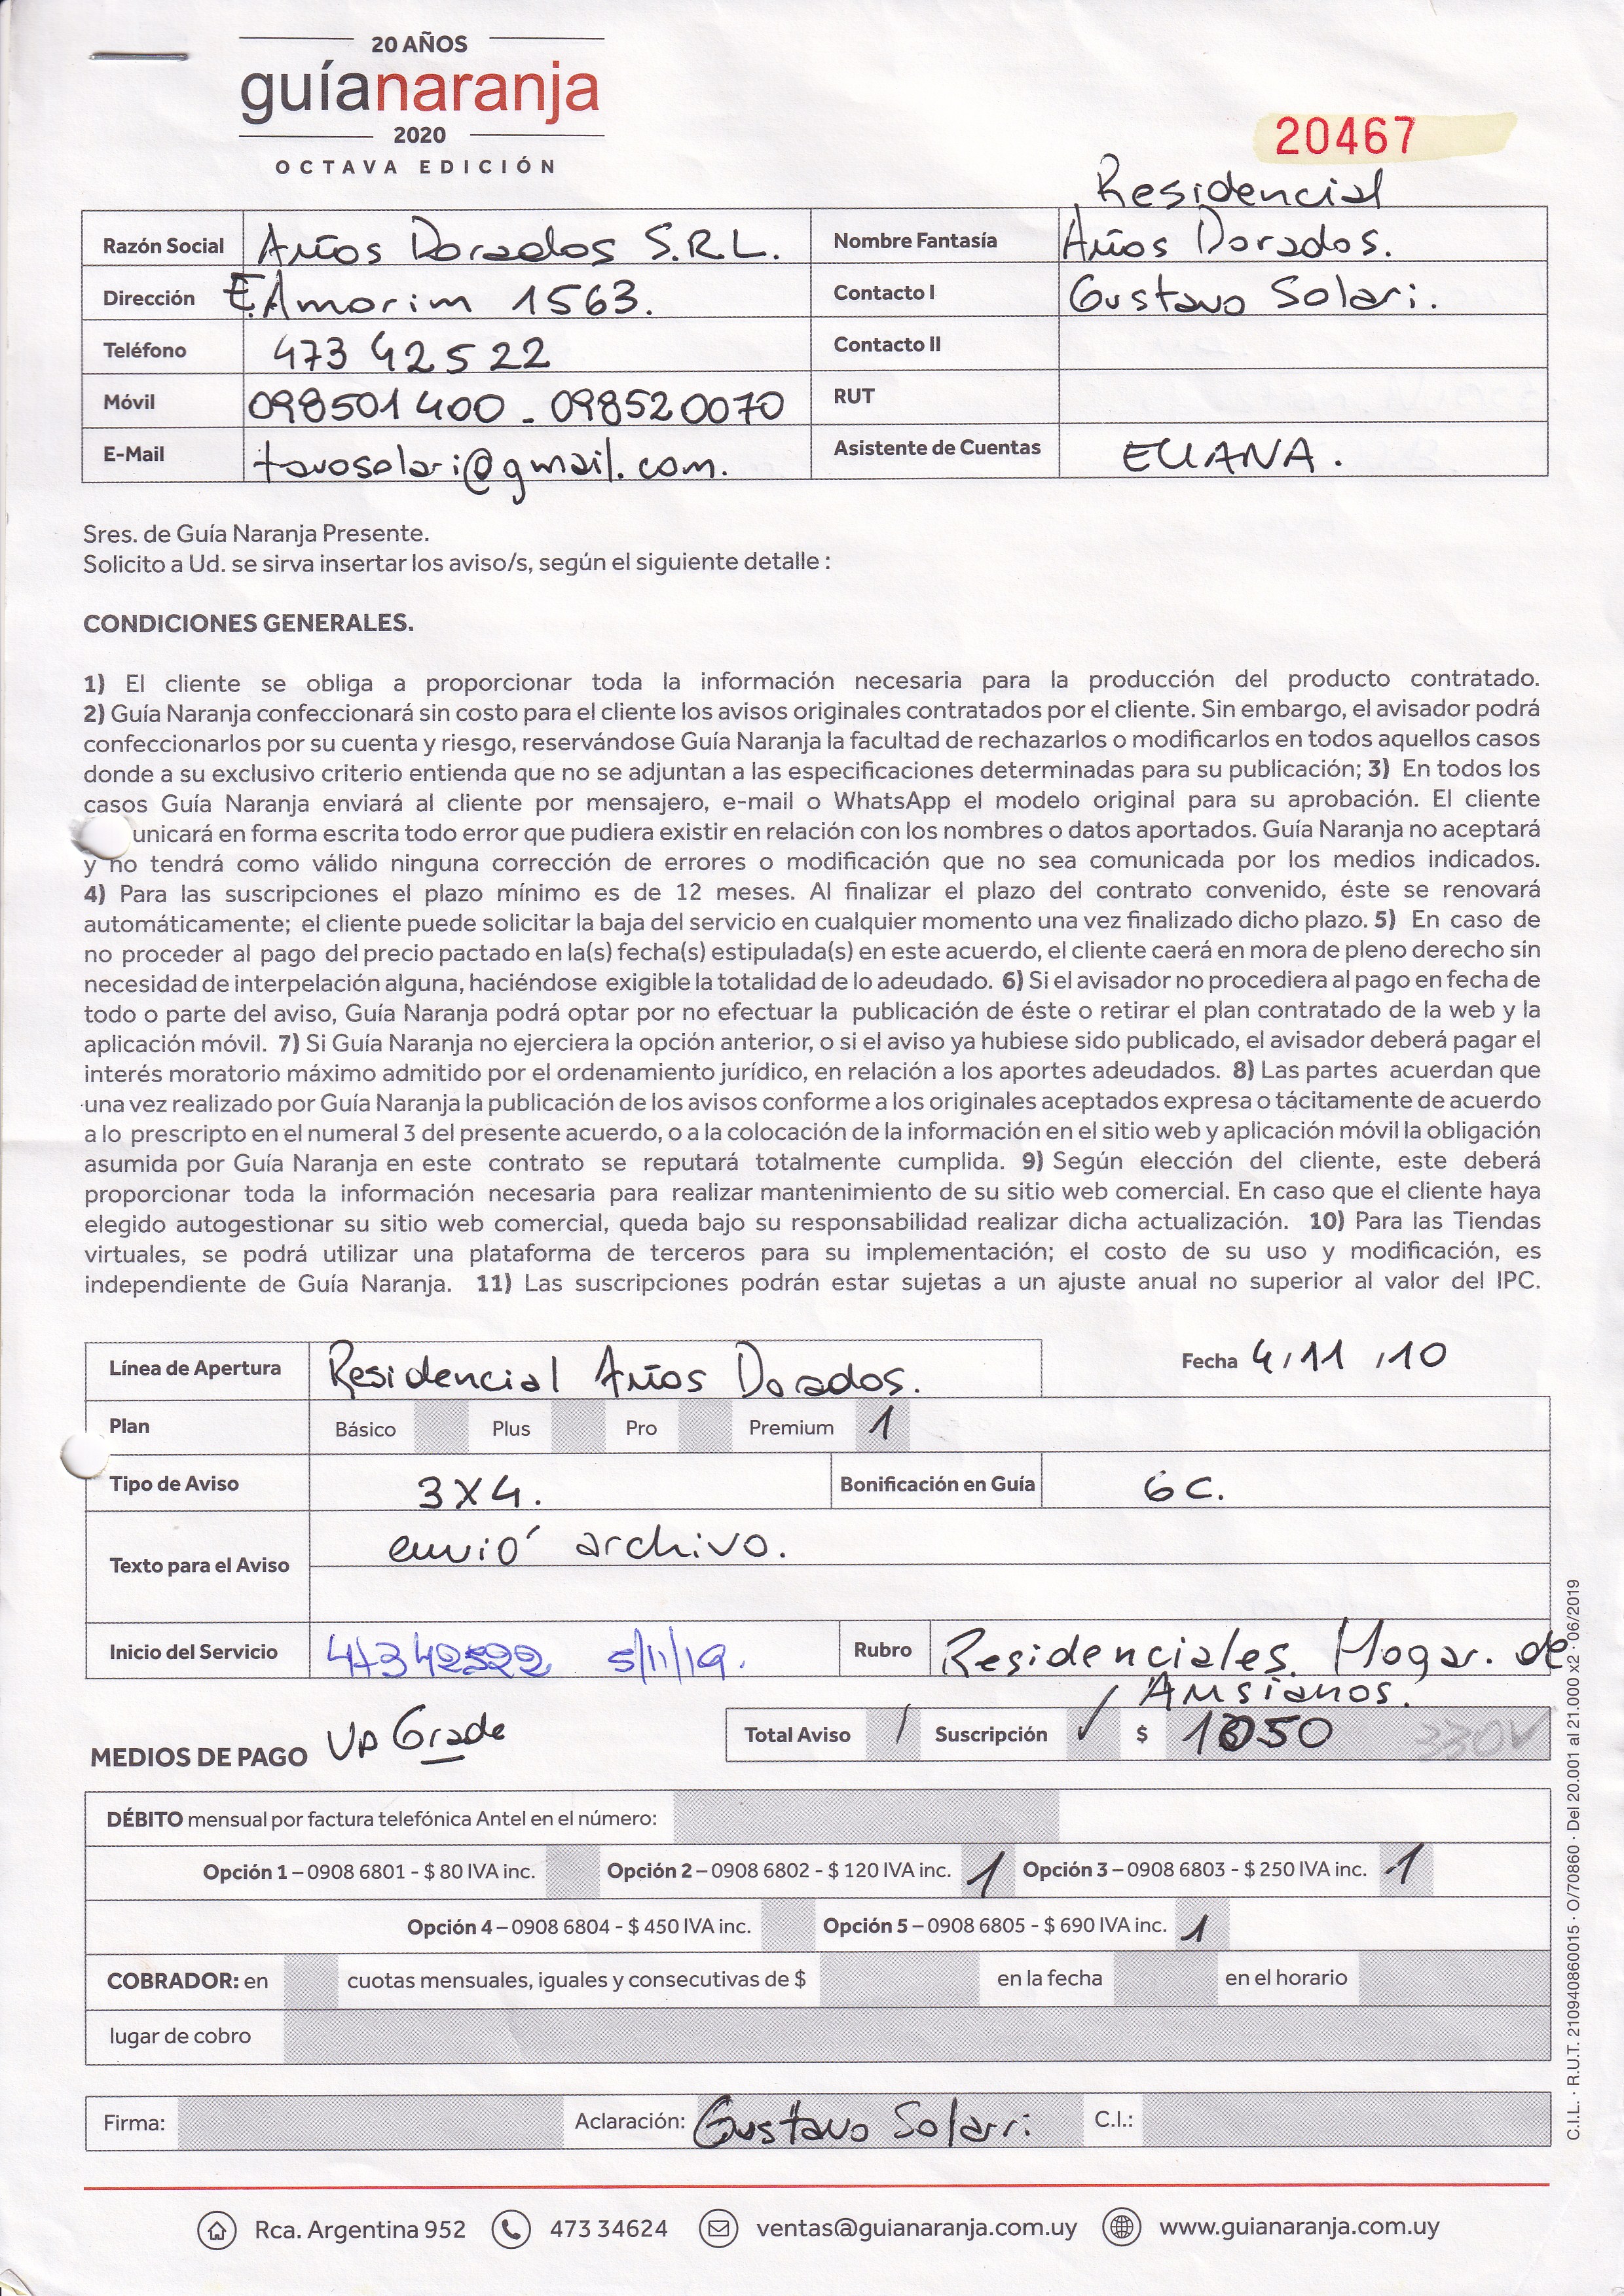 20 AÑOS
guíanaranja
2020
OCTAVA EDICIÓN
20467
Residencial
Razón Social Años Dorados S.R.L. Nombre Fantasía Años Dorados.
Dirección E.Amorim 1563. Contacto I Gustavo Solari.
Teléfono 473 42522 Contacto II
Móvil 098501400 - 098520070 RUT
E-Mail tavosolari@gmail.com. Asistente de Cuentas ELIANA.
Sres. de Guía Naranja Presente.
Solicito a Ud. se sirva insertar los aviso/s, según el siguiente detalle :
CONDICIONES GENERALES.
1) El cliente se obliga a proporcionar toda la información necesaria para la producción del producto contratado.
2) Guía Naranja confeccionará sin costo para el cliente los avisos originales contratados por el cliente. Sin embargo, el avisador podrá
confeccionarlos por su cuenta y riesgo, reservándose Guía Naranja la facultad de rechazarlos o modificarlos en todos aquellos casos
donde a su exclusivo criterio entienda que no se adjuntan a las especificaciones determinadas para su publicación; 3) En todos los
casos Guía Naranja enviará al cliente por mensajero, e-mail o WhatsApp el modelo original para su aprobación. El cliente
unicará en forma escrita todo error que pudiera existir en relación con los nombres o datos aportados. Guía Naranja no aceptará
y no tendrá como válido ninguna corrección de errores o modificación que no sea comunicada por los medios indicados.
4) Para las suscripciones el plazo mínimo es de 12 meses. Al finalizar el plazo del contrato convenido, éste se renovará
automáticamente; el cliente puede solicitar la baja del servicio en cualquier momento una vez finalizado dicho plazo. 5) En caso de
no proceder al pago del precio pactado en la(s) fecha(s) estipulada(s) en este acuerdo, el cliente caerá en mora de pleno derecho sin
necesidad de interpelación alguna, haciéndose exigible la totalidad de lo adeudado. 6) Si el avisador no procediera al pago en fecha de
todo o parte del aviso, Guía Naranja podrá optar por no efectuar la publicación de éste o retirar el plan contratado de la web y la
aplicación móvil. 7) Si Guía Naranja no ejerciera la opción anterior, o si el aviso ya hubiese sido publicado, el avisador deberá pagar el
interés moratorio máximo admitido por el ordenamiento jurídico, en relación a los aportes adeudados. 8) Las partes acuerdan que
una vez realizado por Guía Naranja la publicación de los avisos conforme a los originales aceptados expresa o tácitamente de acuerdo
a lo prescripto en el numeral 3 del presente acuerdo, o a la colocación de la información en el sitio web y aplicación móvil la obligación
asumida por Guía Naranja en este contrato se reputará totalmente cumplida. 9) Según elección del cliente, este deberá
proporcionar toda la información necesaria para realizar mantenimiento de su sitio web comercial. En caso que el cliente haya
elegido autogestionar su sitio web comercial, queda bajo su responsabilidad realizar dicha actualización. 10) Para las Tiendas
virtuales, se podrá utilizar una plataforma de terceros para su implementación; el costo de su uso y modificación, es
independiente de Guía Naranja. 11) Las suscripciones podrán estar sujetas a un ajuste anual no superior al valor del IPC.
Línea de Apertura Residencial Años Dorados. Fecha 4/11/10
Plan Básico Plus Pro Premium 1
Tipo de Aviso 3X4. Bonificación en Guía 6C.
Texto para el Aviso envió archivo.
Inicio del Servicio 47342522 5/11/19. Rubro Residenciales. Hogar. de
Ansianos.
Total Aviso / Suscripción ✓ $ 1050 330✓
MEDIOS DE PAGO Up Grade
DÉBITO mensual por factura telefónica Antel en el número:
Opción 1 – 0908 6801 - $ 80 IVA inc. Opción 2 – 0908 6802 - $ 120 IVA inc. 1 Opción 3 – 0908 6803 - $ 250 IVA inc. 1
Opción 4 – 0908 6804 - $ 450 IVA inc. Opción 5 – 0908 6805 - $ 690 IVA inc. 1
COBRADOR: en cuotas mensuales, iguales y consecutivas de $ en la fecha en el horario
lugar de cobro
Firma: Aclaración: Gustavo Solari C.I.:
C.I.L. · R.U.T. 210940860015 · O/70860 · Del 20.001 al 21.000 x2 · 06/2019
Rca. Argentina 952 473 34624 ventas@guianaranja.com.uy www.guianaranja.com.uy